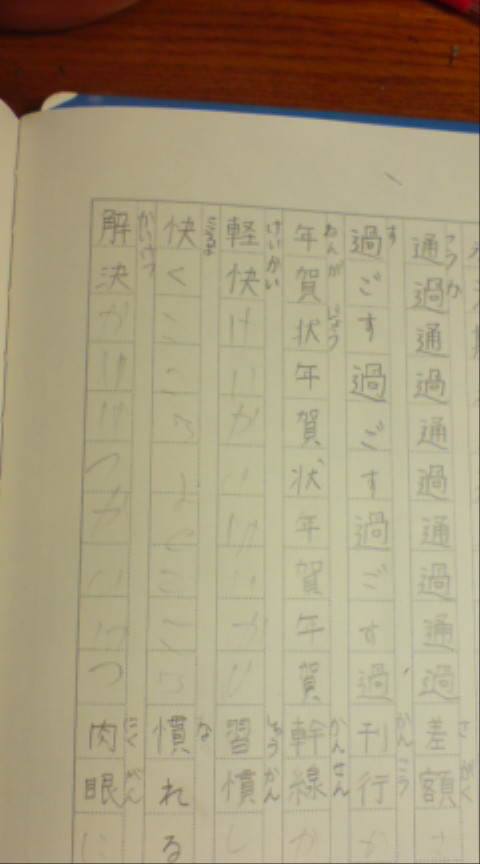 通過通過通過通過差額
つうか
さがく
過ごす過ごす過ごす過刊行
す
かんこう
年賀状年賀状年賀年賀幹線
ねんがじょう
かんせん
軽快けいかいけいかい習慣
けいかい
しゅうかん
快くこころよくここ慣れる
こころよ
な
解決かいけつかいけつ肉眼
かいけつ
にくがん